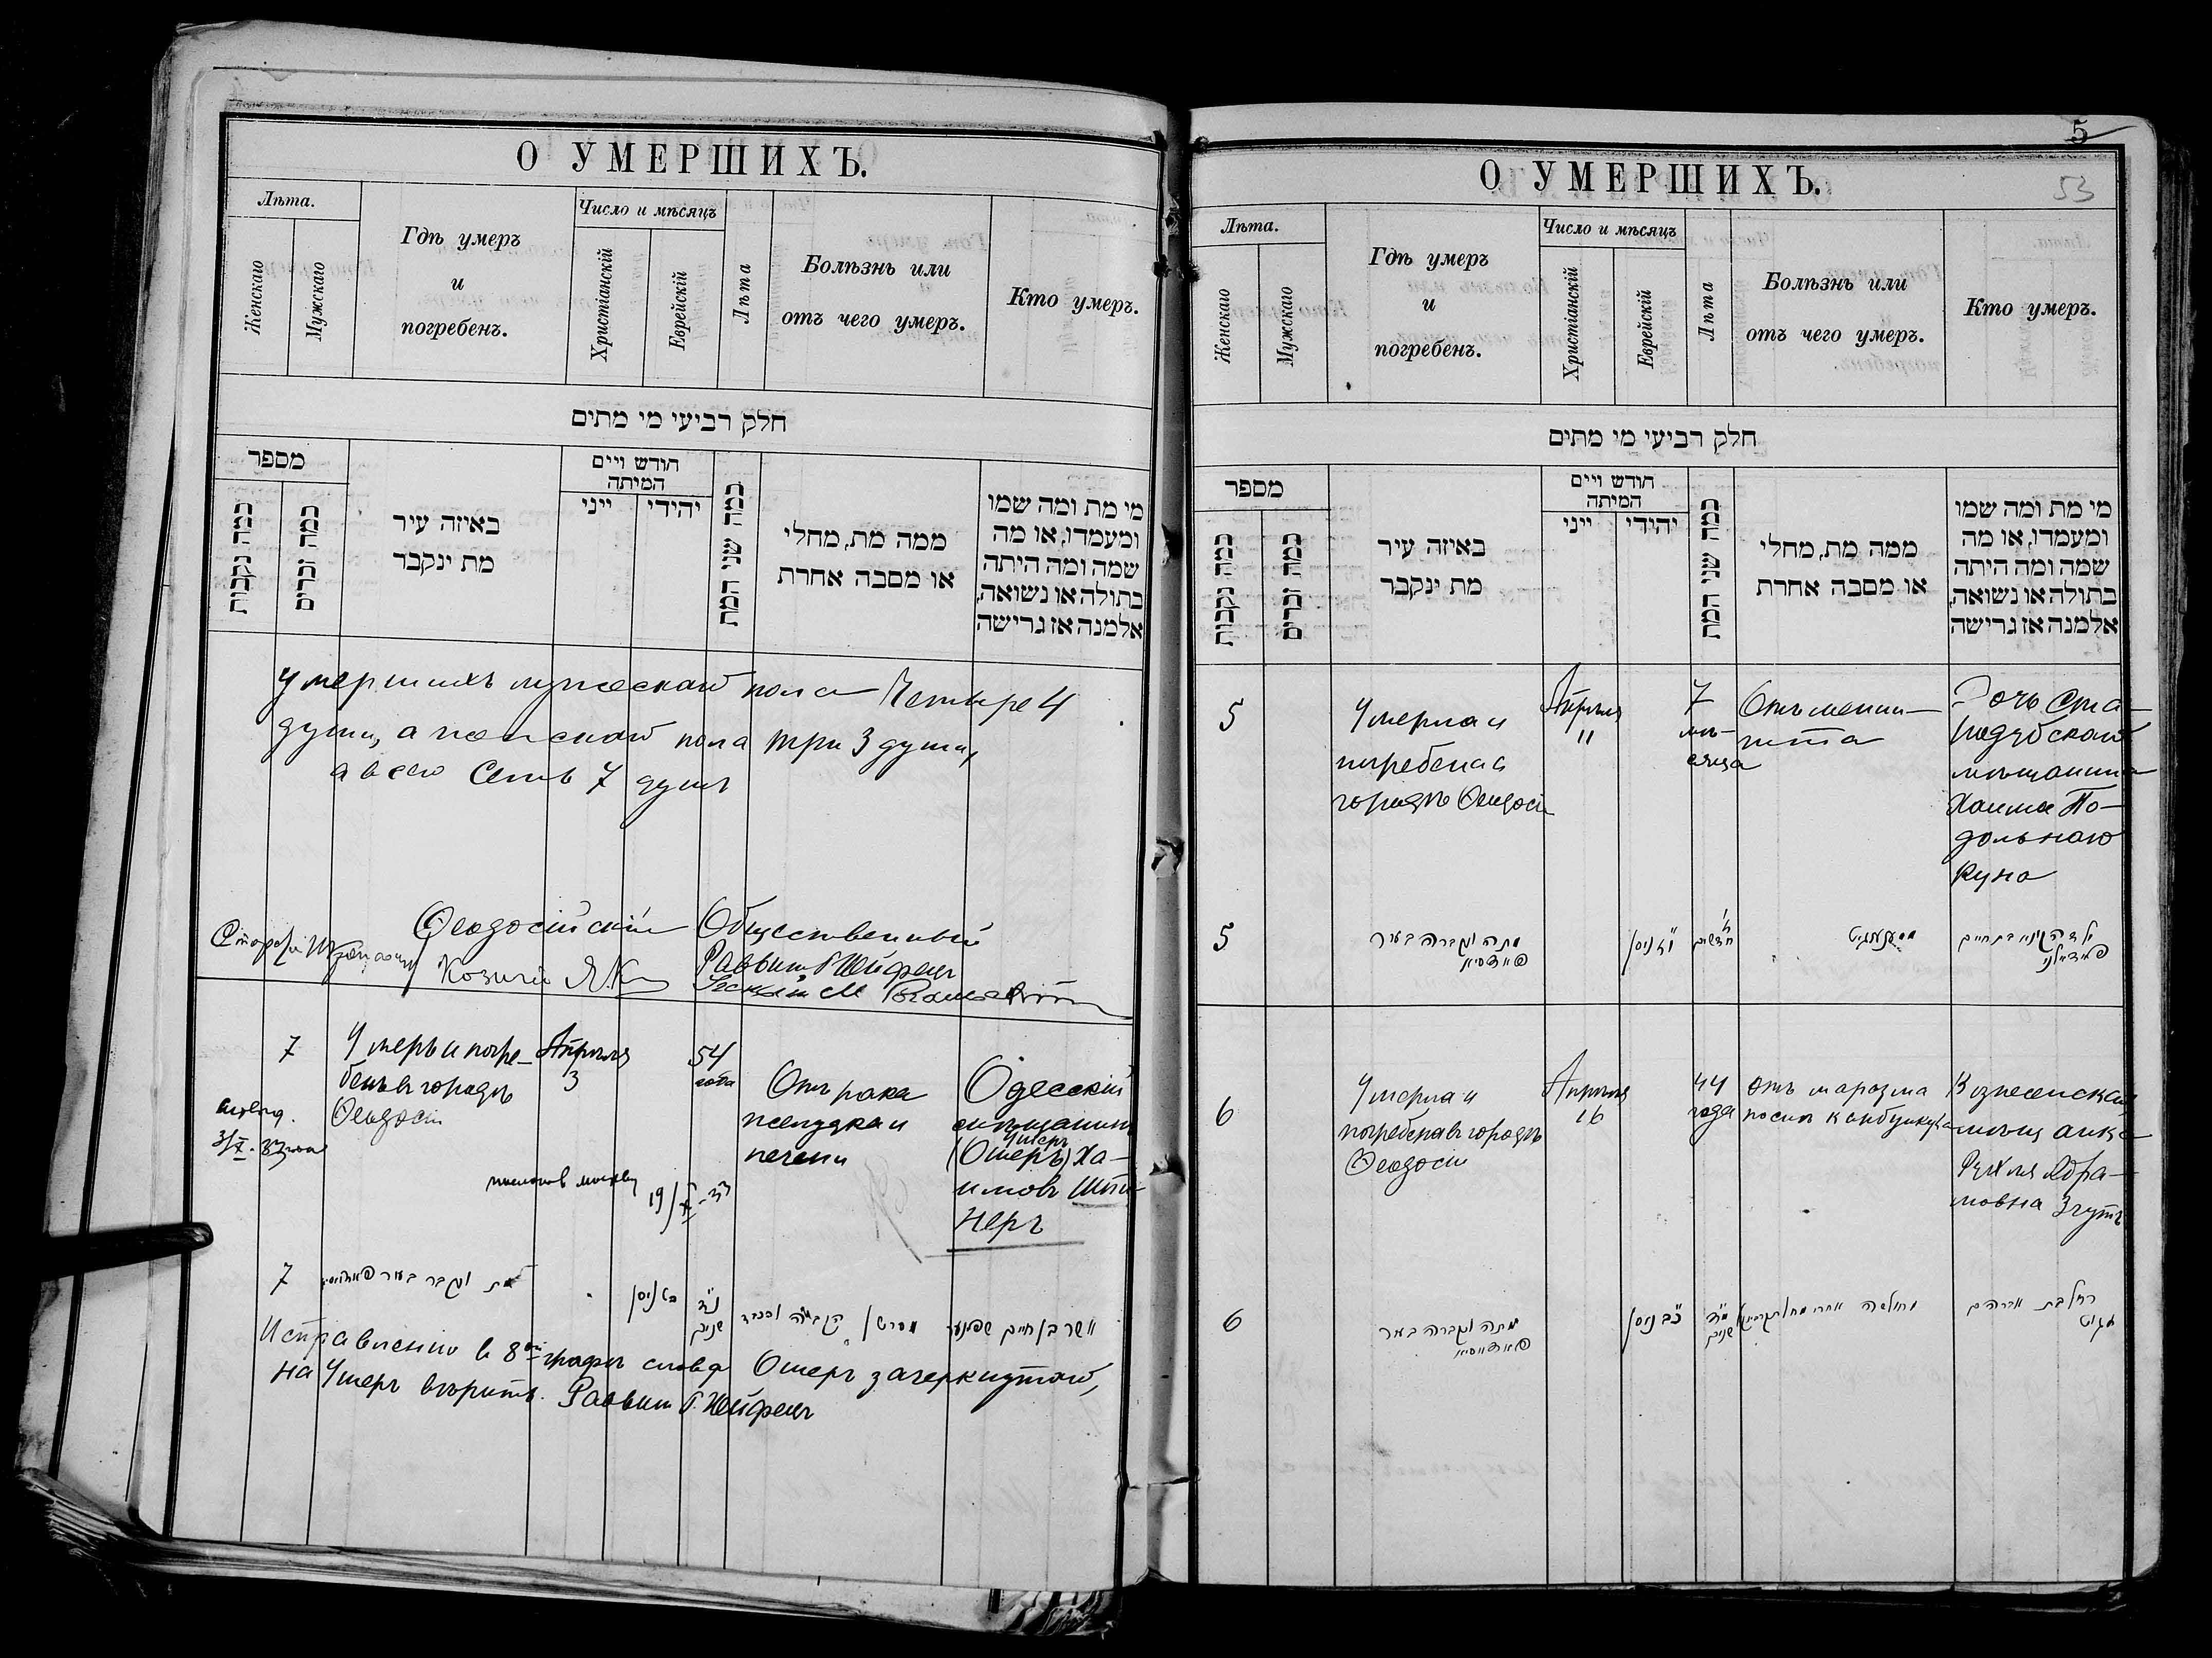 О УМЕРШИХЪ.
Лѣта.
Женскаго
Мужскаго
Гдѣ умеръ
и
погребенъ.
Число и мѣсяцъ
Христіанскій
Еврейскій
Лѣта
Болѣзнь или
отъ чего умеръ.
Кто умеръ.
חלק רביעי מי מתים
מספר
כמה נקבות
כמה זכרים
באיזה עיר
מת ינקבר
חודש ויים
המיתה
ייני
יהידי
כמה שני המת
ממה מת, מחלי
או מסבה אחרת
מי מת ומה שמו
ומעמדו, או מה
שמה ומה היתה
בתולה או נשואה,
אלמנה אז גרישה
умершихъ мужескаго пола Четыре 4
души, а женскаго пола три 3 души,
а всего Семь 7 душъ
Ѳеодосійскій Общественный
Раввинъ Г Шейфецъ
Староста
Козичій Я.К
7
Умеръ и погре-
бенъ въ городѣ
Ѳеодосіи
Апрѣля
3
54
года
Отъ рака
желудка и
печени
Одесскій
мѣщанинъ
Ушеръ
(Ошеръ) Ха-
имовъ Шпи-
неръ
3/X
19/X-33
7
מת ונקבר בעיר
ניסן
נ"ד
שנים
אשר בן חיים שפינער
Исправленію въ 8ой графѣ слова Ошеръ зачеркнутаго,
на Ушеръ вѣрить. Раввинъ Г. Шейфецъ
5
53
О УМЕРШИХЪ.
Лѣта.
Женскаго
Мужскаго
Гдѣ умеръ
и
погребенъ.
Число и мѣсяцъ
Христіанскій
Еврейскій
Лѣта
Болѣзнь или
отъ чего умеръ.
Кто умеръ.
חלק רביעי מי מתים
מספר
כמה נקבות
כמה זכרים
באיזה עיר
מת ינקבר
חודש ויים
המיתה
ייני
יהידי
כמה שני המת
ממה מת, מחלי
או מסבה אחרת
מי מת ומה שמו
ומעמדו, או מה
שמה ומה היתה
בתולה או נשואה,
אלמנה אז גרישה
5
Умерла и
погребена въ
городѣ Ѳеодосіи
Апрѣля
11
7
мѣ-
сяца
Отъ менин-
гита
Дочь Ста-
родубскаго
мѣщанина
Хаима По-
дольнаго
Куна
5
מתה ונקברה בעיר
ניסן
ז'
חדשים
בת חיים
6
Умерла и
погребена въ городѣ
Ѳеодосіи
Апрѣля
16
44
года
отъ маразма
послѣ
Вознесенская
мѣщанка
Рухля Абра-
мовна Згутъ
6
מתה ונקברה בעיר
כ"ב ניסן
מ"ד
שנים
רחל בת אברהם
זגוט